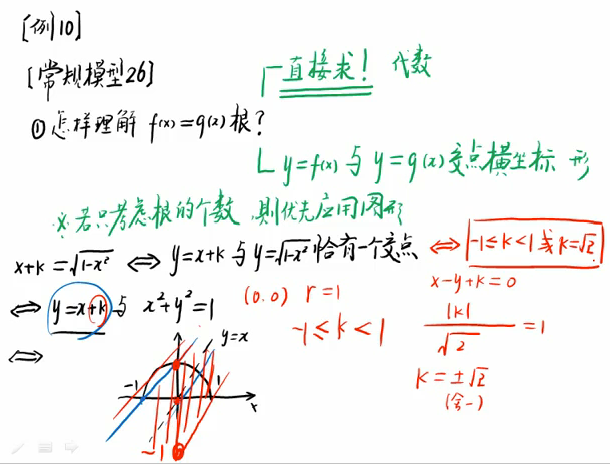 [例10]
[常规模型26]
①怎样理解 f(x)=g(x)根?
直接求! 代数
y=f(x)与y=g(x)交点横坐标 形
※若只考虑根的个数,则优先应用图形
x+k=√1-x² ⇔ y=x+k与y=√1-x²恰有一个交点 ⇔ -1≤k<1或k=√2
⇔ y=x+k与 x²+y²=1
(0.0) r=1
-1≤k<1
x-y+k=0
|k|/√2=1
k=±√2
(舍-)
⇔
y=x
-1
1
x
-1